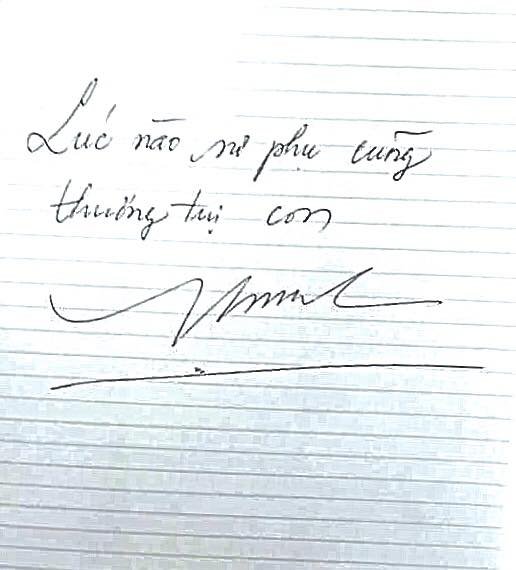 Lúc nào sư phụ cũng
thương tụi con